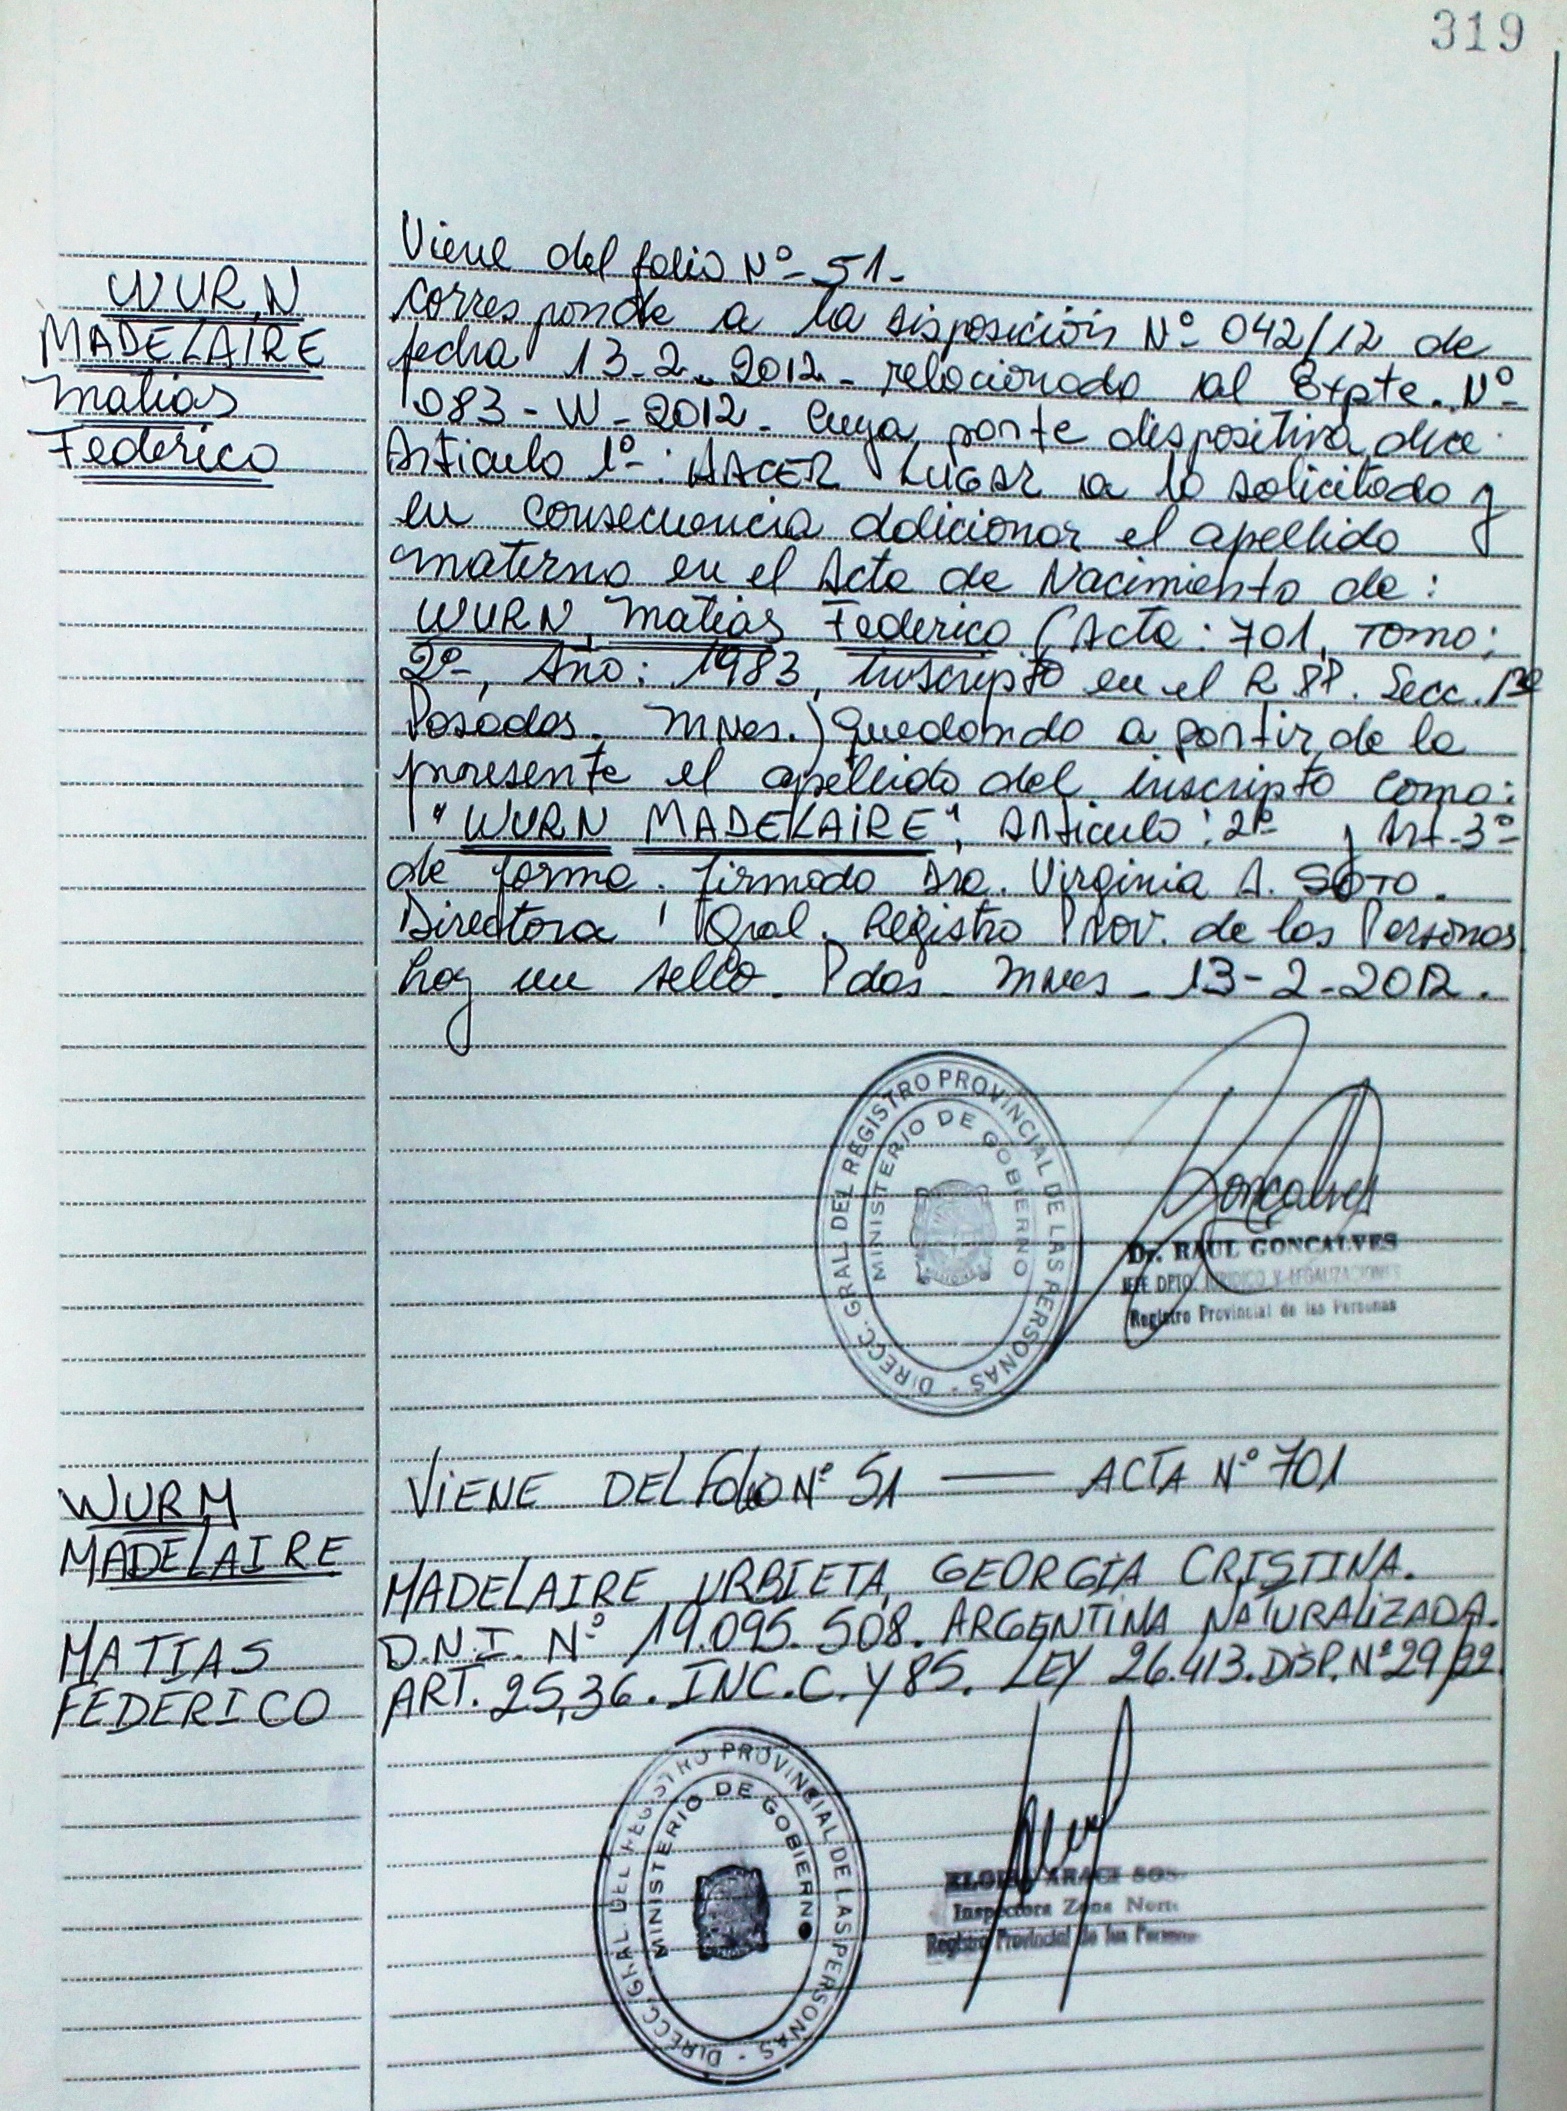 319
WURN
MADELAIRE
Matias
Federico
Viene del folio Nº 51-
Corresponde a la disposición Nº 042/12 de
fecha 13-2-2012- relacionado al Expte. Nº
083-W-2012- Cuya parte dispositiva dice:
Articulo 1º: HACER LUGAR a lo solicitado y
en consecuencia adicionar el apellido
materno en el Acta de Nacimiento de:
WURN, Matias Federico (Acta: 701, Tomo:
2º, Año: 1983, inscripto en el R.PP. Secc. 1ª
Posadas. Mnes.) quedando a partir de la
presente el apellido del inscripto como:
"WURN MADELAIRE", Articulo: 2º y Art-3º
de forma. firmado Dra. Virginia A. SOTO.
Directora Gral. Registro Prov. de las Personas
hay un sello. Pdas- Mnes- 13-2-2012.
DIRECC. GRAL. DEL REGISTRO PROVINCIAL DE LAS PERSONAS -
MINISTERIO DE GOBIERNO
Goncalves
Dr. RAUL GONCALVES
JEFE DPTO. JURIDICO Y LEGALIZACIONES
Registro Provincial de las Personas
WURM
MADELAIRE
MATIAS
FEDERICO
VIENE DEL Folio Nº 51 —— ACTA Nº 701
MADELAIRE URBIETA, GEORGIA CRISTINA.
D.N.I. Nº 19.095.508. ARGENTINA NATURALIZADA.
ART. 25,36. INC.C. Y 85. LEY 26.413. DISP. Nº 29/22.
DIRECC. GRAL. DEL REGISTRO PROVINCIAL DE LAS PERSONAS -
MINISTERIO DE GOBIERNO
ARACI SOS
Inspectora Zona Norte
Registro Provincial de las Personas